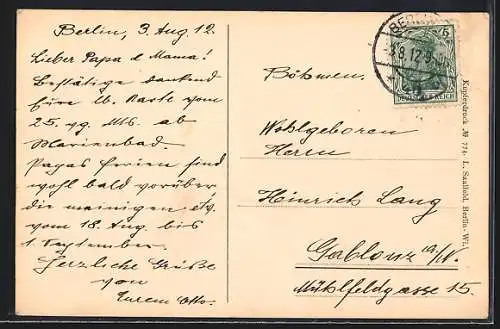 Berlin, 3. Aug. 12.
Lieber Papa & Mama!
Bestätige dankend
Eure lb. Karte vom
25. vg. Mts. ab
Marienbad.
Papas Ferien sind
wohl bald vorüber
die meinigen
vom 18. Aug. bis
1. September.
Herzliche Grüße
von
Eurem Otto.
BERLIN
3.8.12.9
5
DEUTSCHES REICH
Böhmen.
Wohlgeboren
Herrn
Heinrich Lang
Gablonz a/N.
Mühlfeldgasse 15.
Kupferdruck № 77. L. Saalfeld, Berlin-Wl.